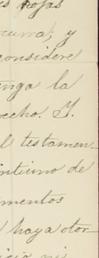 hojas
curra, y
considere
nga la
echo. Y.
l testamen-
inticino de
mentos
haya otor-